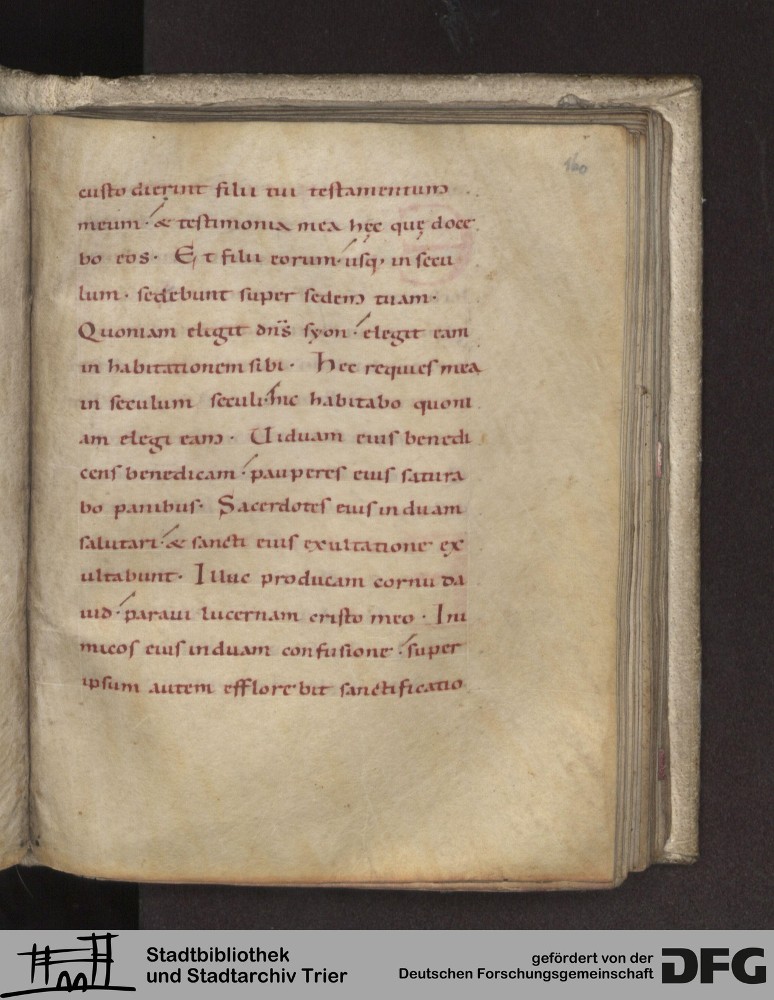 160
custodierint filii tui testamentum
meum· & testimonia mea hęc quę doce
bo eos· Et filii eorum· usq· in secu
lum· sedebunt super sedem tuam·
Quoniam elegit dn̄s syon· elegit eam
in habitationem sibi· Hec requies mea
in seculum seculi· hic habitabo quoni
am elegi eam· Uiduam eius benedi
cens benedicam· pauperes eius satura
bo panibus· Sacerdotes eius induam
salutari· & sancti eius exultatione ex
ultabunt· Illuc producam cornu da
uid· paraui lucernam cristo meo· Ini
micos eius induam confusione· super
ipsum autem efflorebit sanctificatio
Stadtbibliothek
und Stadtarchiv Trier
gefördert von der
Deutschen Forschungsgemeinschaft
DFG